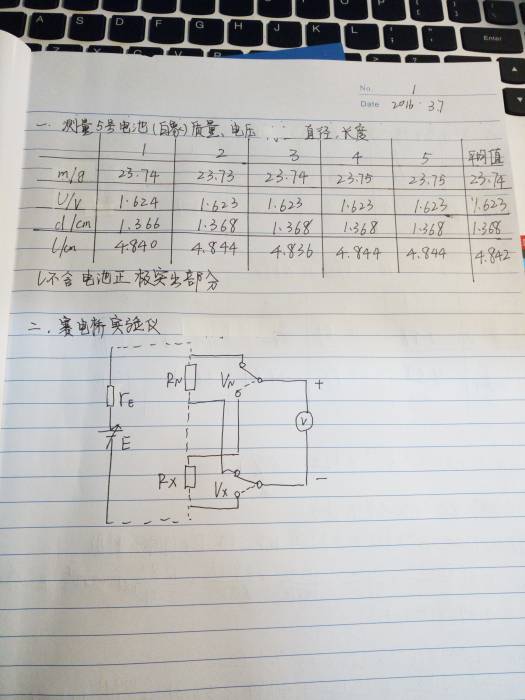 No. 1
Date 2016.3.7
一、测量5号电池(白象)质量、电压、直径、长度
1 2 3 4 5 平均值
m/g 23.74 23.73 23.74 23.75 23.75 23.74
U/V 1.624 1.623 1.623 1.623 1.623 1.623
d/cm 1.366 1.368 1.368 1.368 1.368 1.368
l/cm 4.840 4.844 4.836 4.844 4.844 4.842
l不含电池正极突出部分
二、赛电桥实验仪
RN VN +
rE V
E
RX VX -